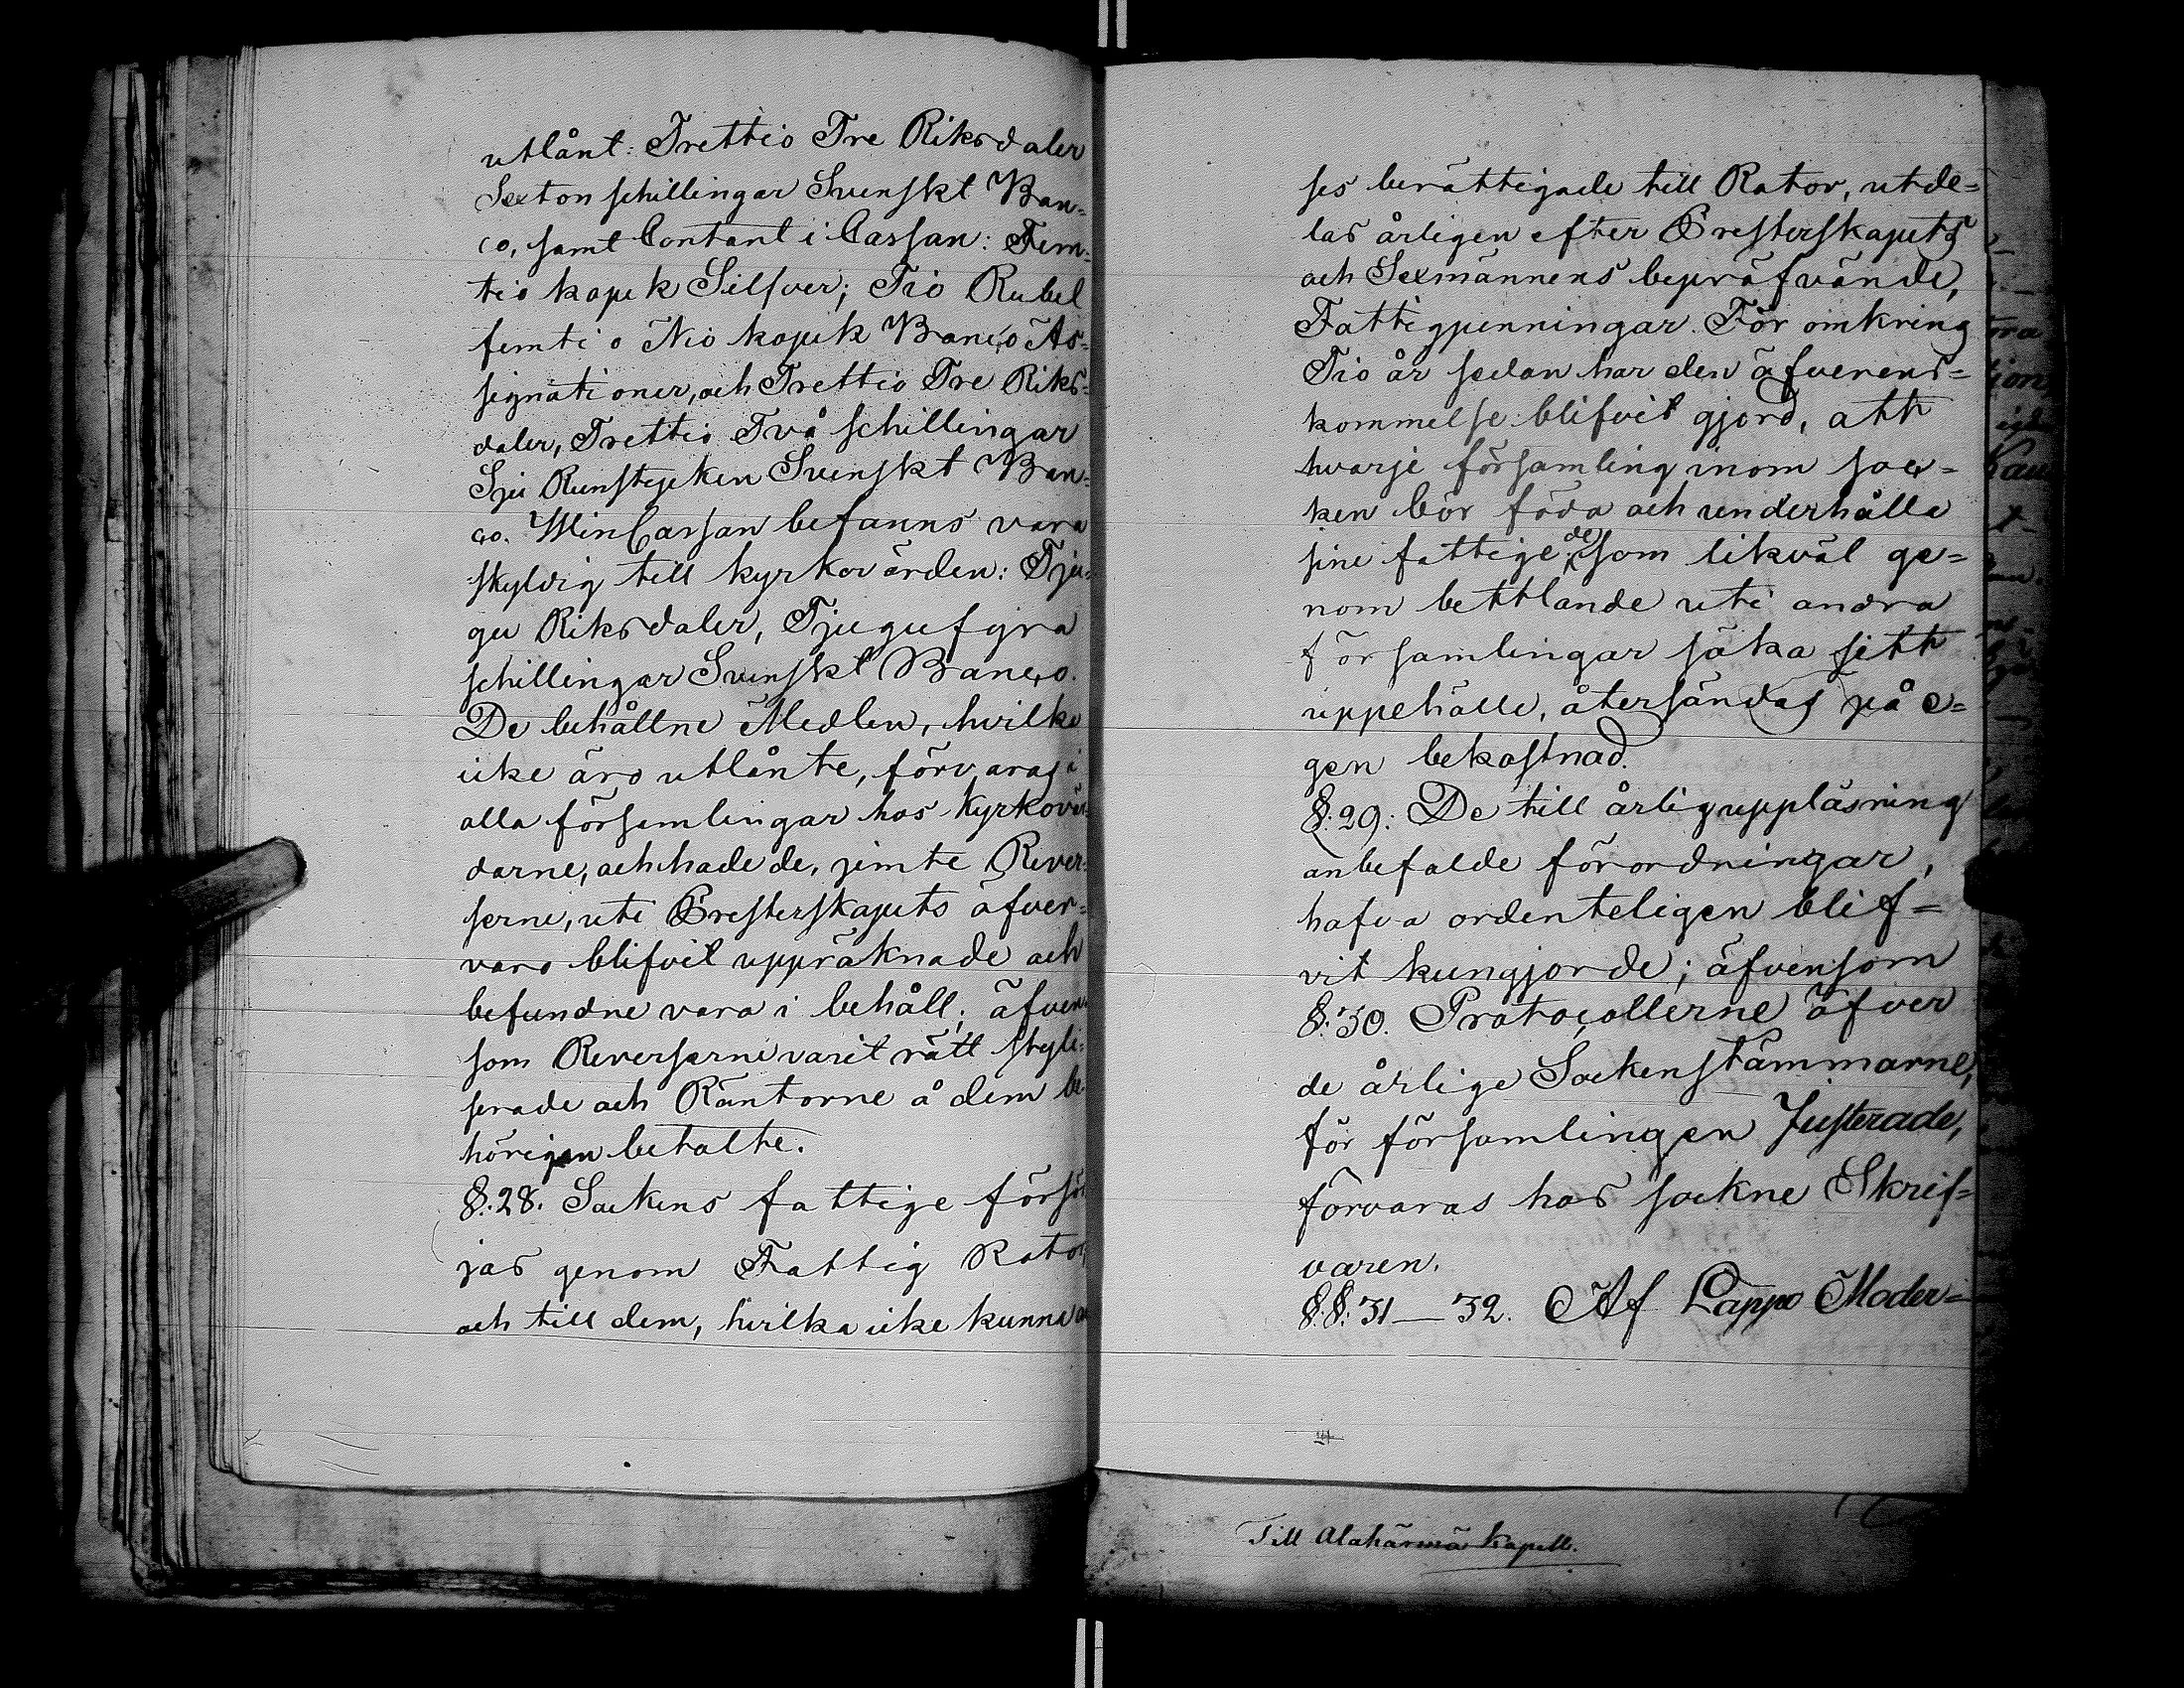 utlånt: Trettio Tre Riksdaler
Sexton schillingar Svenskt Ban=
co, samt Contant i Cassan: Fem=
tio kopek Silfver; Tio Rubel
femtio Nio kopek Banco As=
signationer, och Trettio Tre Riks=
daler, Trettio Två schillingar
Sju Runstycken Svenskt Ban=
co. Vin Cassan befanns vara
skyldig till kyrkovärden: Tju=
gu Riksdaler, Tjugufyra
schillingar Svenskt Banco.
De behållne Medlen, hvilke
icke äro utlånte, förvaras i
alla församlingar hos Kyrkovär=
darne, och hade de, jemte Rever=
serne, uti Presterskapets öfver=
varo blifvit uppräknade och
befundne vara i behåll; äfven=
som Reverserne varit rätt styli=
serade och Räntorne å dem be=
hörigen betalte.
§:28. Sockens fattige försör
jas genom Fattig Rotor,
och till dem, hvilka icke kunna an
ses berättigade till Rotor, utde=
las årligen efter Presterskapets
och Sexmännens bepröfvände,
Fattigpenningar. För omkring
Tio år sedan har den öfverens=
kommelse blifvit gjord, att
hvarje församling inom soc=
ken bör föda och underhålla
sine fattige; de som likväl ge=
nom bettlande uti andra
församlingar söka sitt
uppehälle, återsändas på e=
gen bekostnad.
§:29: De till årlig uppläsning
anbefalde förordningar,
hafva ordenteligen blif=
vit kungjorde; äfvensom
§:30. Protocollerne öfver
de årlige Sockenstämmorne,
för församlingen Justerade,
förvaras hos sockne Skrif=
varen.
§.§:31—32. Af Lappo Moder=
Till Alahärmä Kapell.